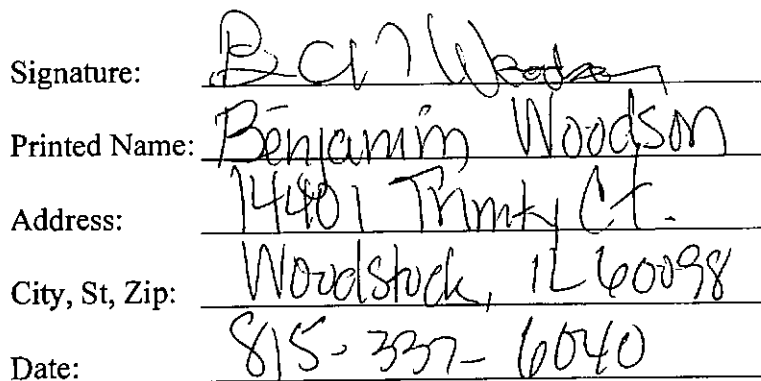 Signature: Ben Woodson
Printed Name: Benjamin Woodson
Address: 14401 Trinity Ct.
City, St, Zip: Woodstock, IL 60098
Date: 815-337-6040